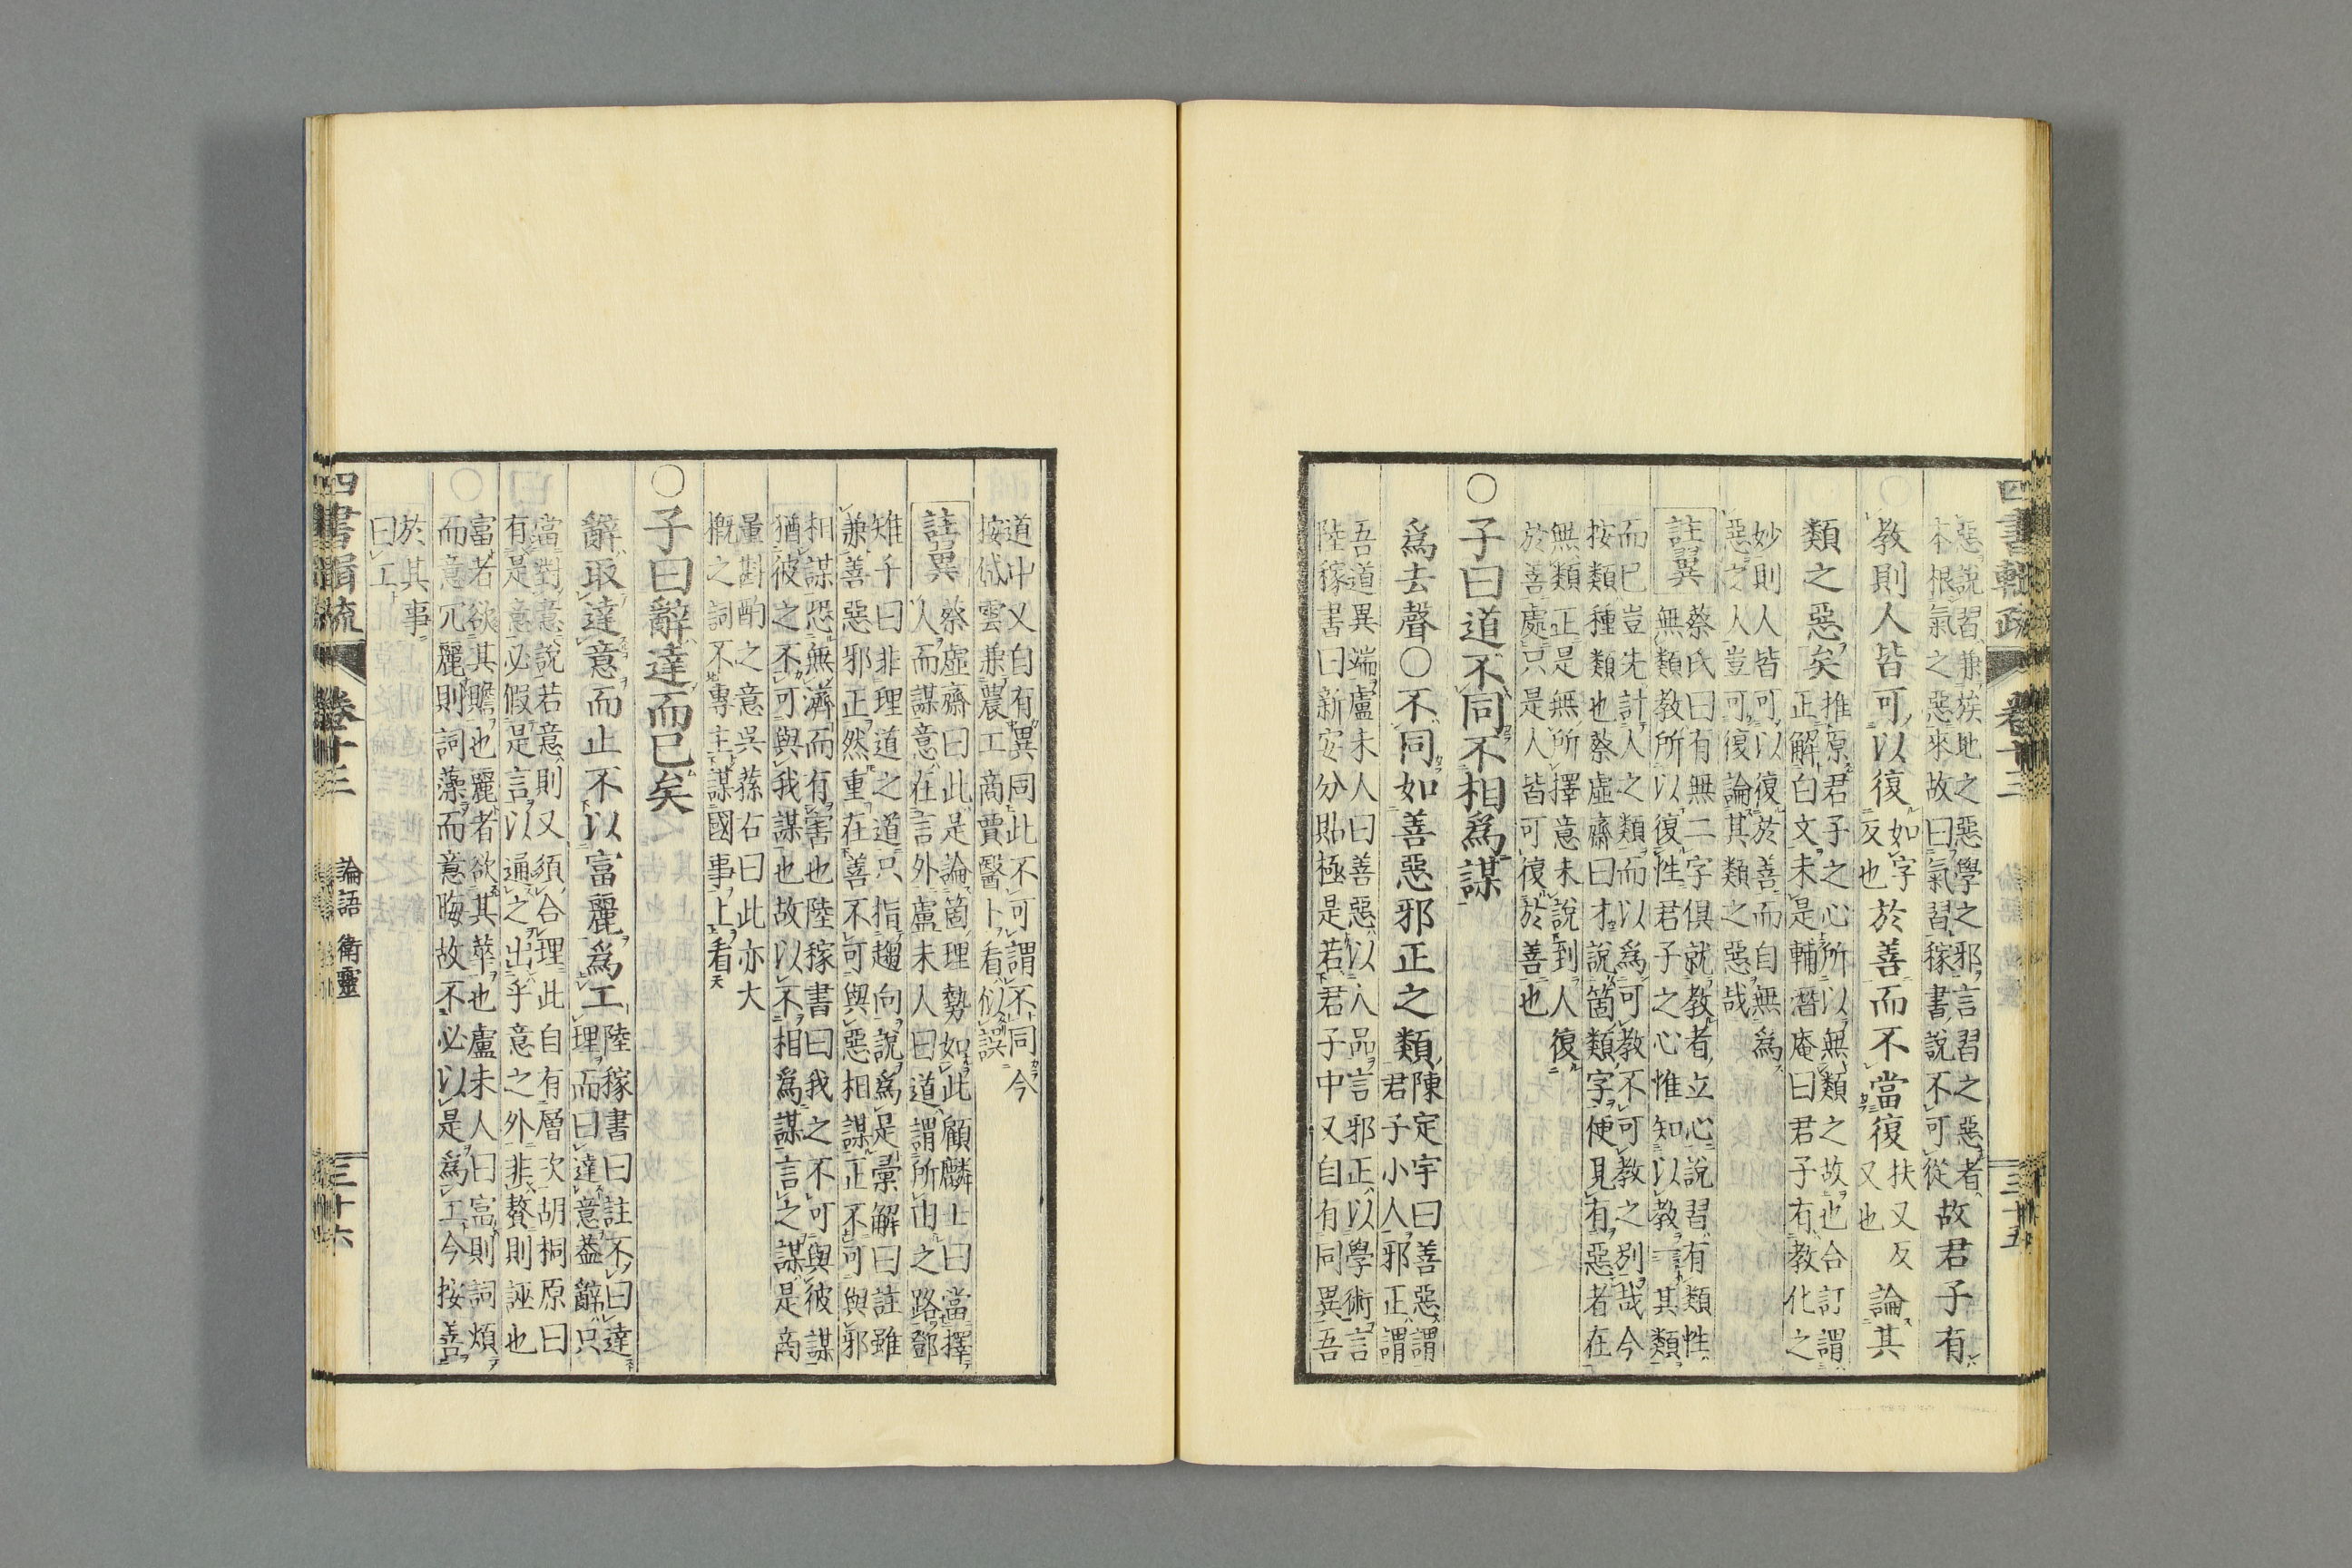 惡說習兼族地之惡學之邪言習之惡者
本根氣之惡來故曰氣習稼書說不可從
故君子有
教則人皆可以復
如字
反也
於善而不當復
扶又反
又也
論其
類之惡矣
推原君子之心所以無類之故也合訂謂
正解白文未是輔潛庵曰君子有教化之
妙則人皆可以復於善而自無爲
惡之人豈可復論其類之惡哉
註異
蔡氏曰有無二字俱就教者立心說習有類性
無類教所以復性君子之心惟知以教言其類
而已豈先計人之類而以爲可教不可教之別哉今
按類種類也蔡虛齋曰才說箇類字便見有惡者在
無類正是無所擇意未說到人復
於善處只是人皆可復於善也
○子曰道不同不相爲謀
爲去聲○不同如善惡邪正之類
陳定宇曰善惡謂
君子小人邪正謂
吾道異端盧未人曰善惡以人品言邪正以學術言
陸稼書曰新安分貼極是若君子中又自有同異吾
四書輯疏 卷十三
三十五
道中又自有異同此不可謂不同今
按伩雲兼農工商賈醫卜看似誤
註異
蔡虛齋曰此是論箇理勢如此顧麟士曰當擇
人而謀意在言外盧未人曰道謂所由之路鄧
雉千曰非理道之道只指趨向說爲是彙解曰註雖
兼善惡邪正然重在善不可與惡相謀正不可與邪
相謀恐無濟而有害也陸稼書曰我之不可與彼謀
猶彼之不可與我謀也故以不相爲謀言之謀是商
量斟酌之意吳蓀右曰此亦大
概之詞不專主謀國事上看
○子曰辭達而已矣
辭取達意而止不以富麗爲工
陸稼書曰註不曰達
理而曰達意葢辭只
當對意說若意則又須合理此自有層次胡桐原曰
有是意必假是言以通之出乎意之外非贅則誣也
富者欲其贍也麗者欲其華也盧未人曰富則詞煩
而意冗麗則詞藻而意晦故不必以是爲工今按善
於其事
曰工
四書輯疏 卷十三 論語 衛靈
三十六